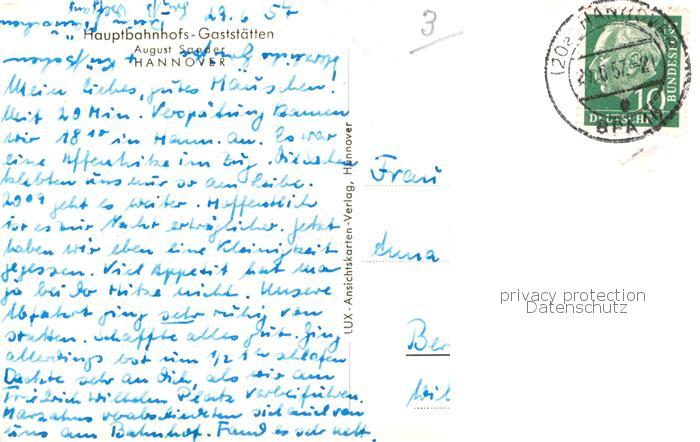 29.6.57
Hauptbahnhofs-Gaststätten
August Sander
HANNOVER
Mein liebes, gutes Mäuschen.
Mit 20 Min. Verspätung kamen
wir 18¹⁰ in Hann. an. Es war
eine Affenhitze im Zug. Die
klebten uns nur so am Leibe.
20⁰⁹ geht es weiter. Hoffentlich
ist es zur Nacht erträglicher. Jetzt
haben wir eben eine Kleinigkeit
gegessen. Viel Appetit hat man
ja bei der Hitze nicht. Unsere
Abfahrt ging sehr ruhig von
statten. Schaffte alles gut. Ging
allerdings erst um 1/2 1 h schlafen
Dachte sehr an Dich, als wir am
Friedrich Wilhelm Platz vorbeifuhren.
Marzahns verabschiedeten sich auch von
uns am Bahnhof. Fand es sehr nett.
LUX-Ansichtskarten-Verlag, Hannover
3
Frau
Anna
Ber
Wil
(20a) HANNOVER
10
DEUTSCHE
BUNDESPOST
privacy protection
Datenschutz